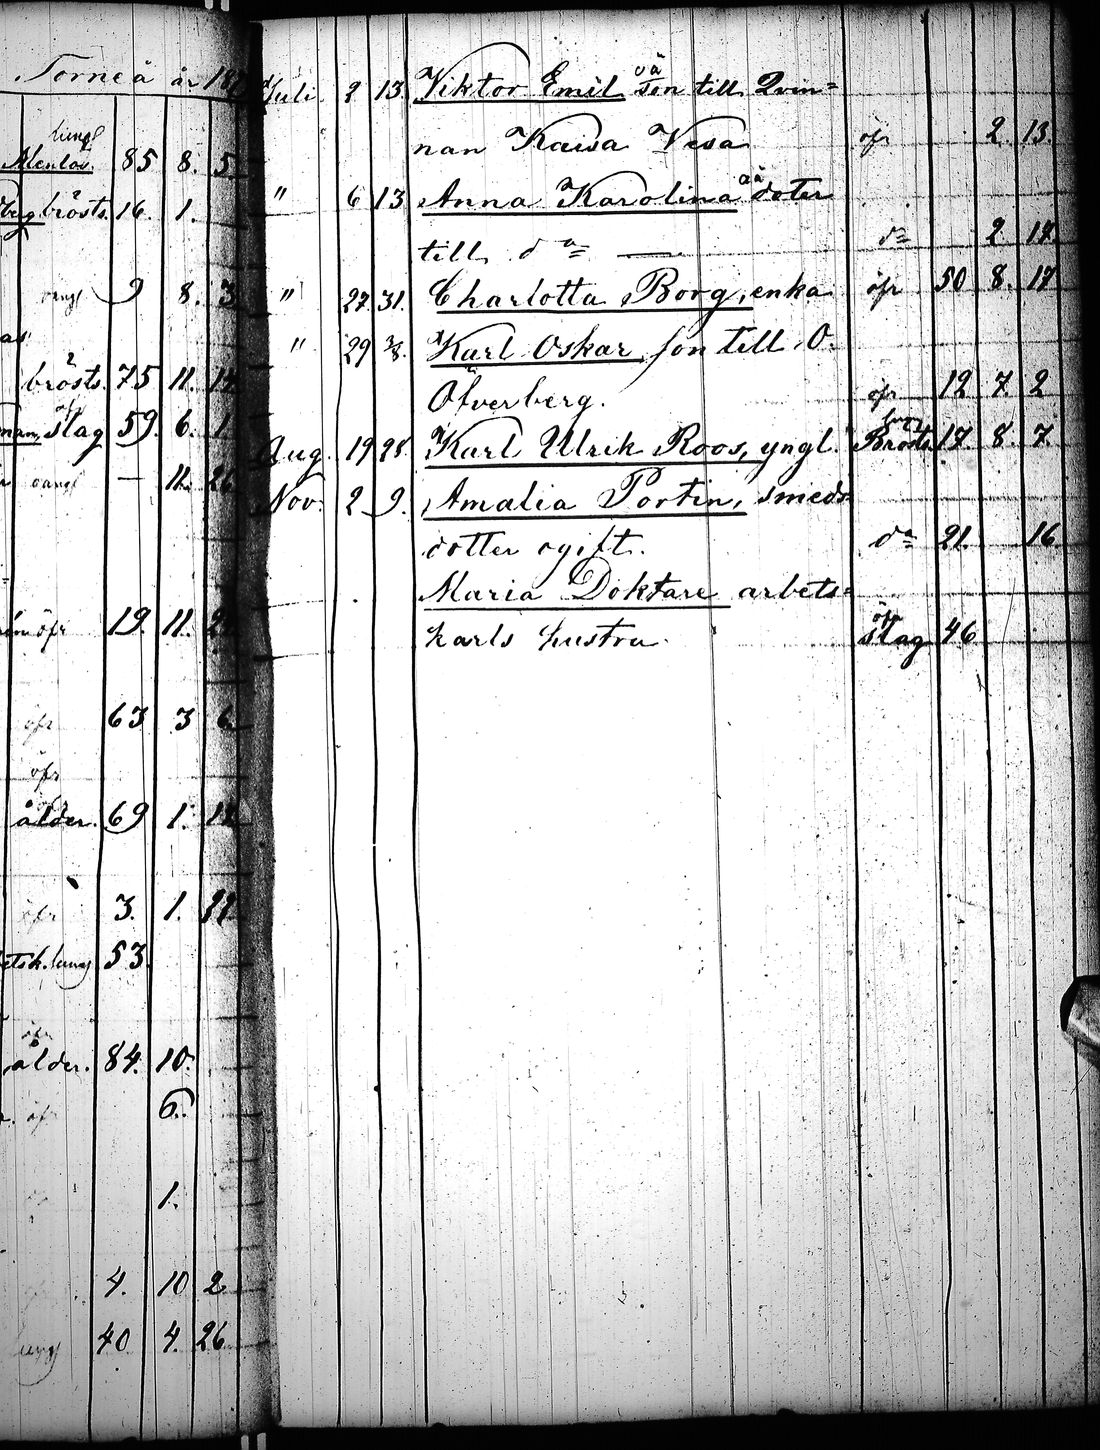 Torneå år 187
lungs
Alenlos. 85 8. 5
berg brösts. 16. 1.
9 8. 3
brösts. 75 11. 12
man, slag 59. 6. 1.
— 11. 26
öfr 19. 11. 22
öfr 63 3 6
öfr
ålder. 69 1. 12
öfr 3. 1. 22
betsk. lung 53.
ålder. 84. 10.
öfr 6.
1.
4. 10 2
lung 40 4. 26
Juli. 2 13. Viktor Emil oä son till Qvin=
nan Kaisa Vesa öfr 2. 13.
" 6 13 Anna Karolina oä doter
till do — do 2 17.
" 27. 31. Charlotta Borg, enka öfr 50 8. 17
" 29 3/8. Karl Oskar, son till O.
Öfverberg. öfr 12 7. 2
Aug. 19 28. Karl Ulrik Roos, yngl. Brösts 17. 8. 7.
Nov. 2 9. Amalia Portin, smeds=
dotter ogift. do 21. 16.
Maria Doktare arbets=
karls hustru. öfr slag 46